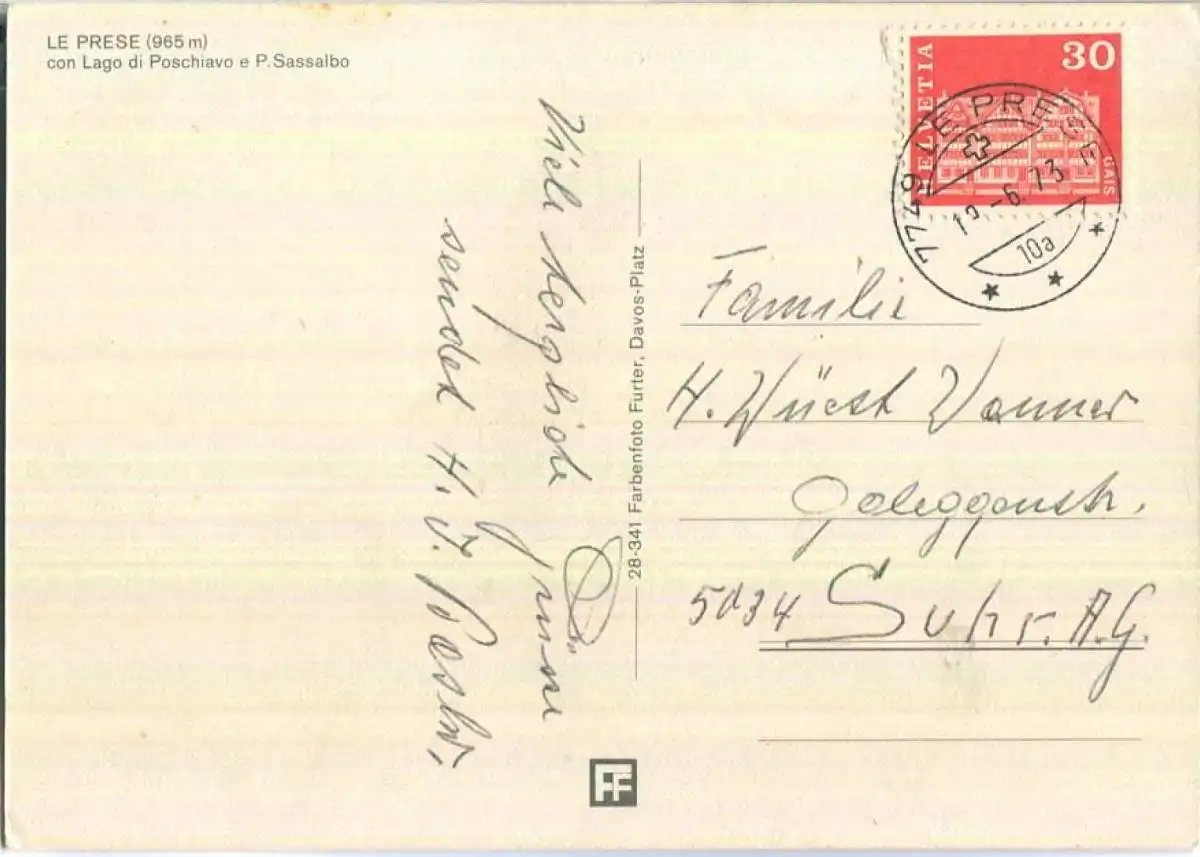 LE PRESE (965 m)
con Lago di Poschiavo e P. Sassalbo
HELVETIA
30
GAIS
7749 LE PRESE
19.-6.73
10a
Viele herzliche Grüsse
sendet H.
28-341 Farbenfoto Furter, Davos-Platz
Familie
H. Wüest Wanner
5034 Suhr. A.G.
FF